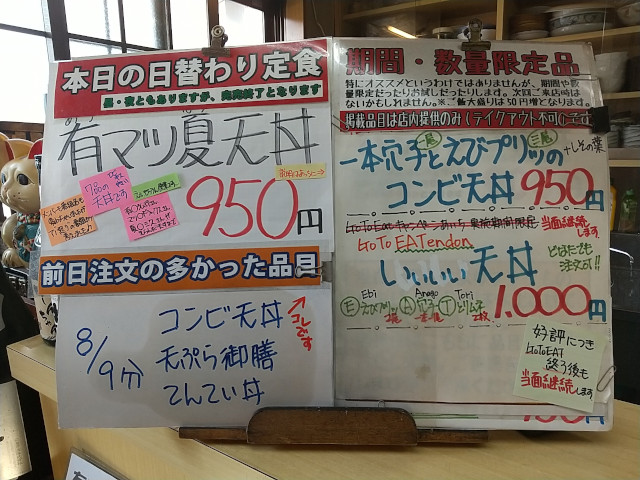 本日の日替わり定食
昼・夜ともありますが、売切終了となります
有マツ夏天丼
7品の
天丼です
950円
前日注文の多かった品目
8/9分
コンビ天丼
天ぷら御膳
てんてい丼
コレです
期間・数量限定品
特にオススメというわけではありませんが、期間や数
量限定だったりお試しだったりします。次回ご来店時は
ないかもしれません。※ご飯大盛りは50円増となります。
掲載品目は店内提供のみ(テイクアウト不可)です
一本穴子と二尾えびプリッツの三尾
+しその葉
コンビ天丼 950円
当面継続
します
GoTo EATendon
いいいい天丼
どなたでも
注文可!!
Ebi
Anago
Tori
1.000円
好評につき
GoToEAT
終了後も
当面継続します